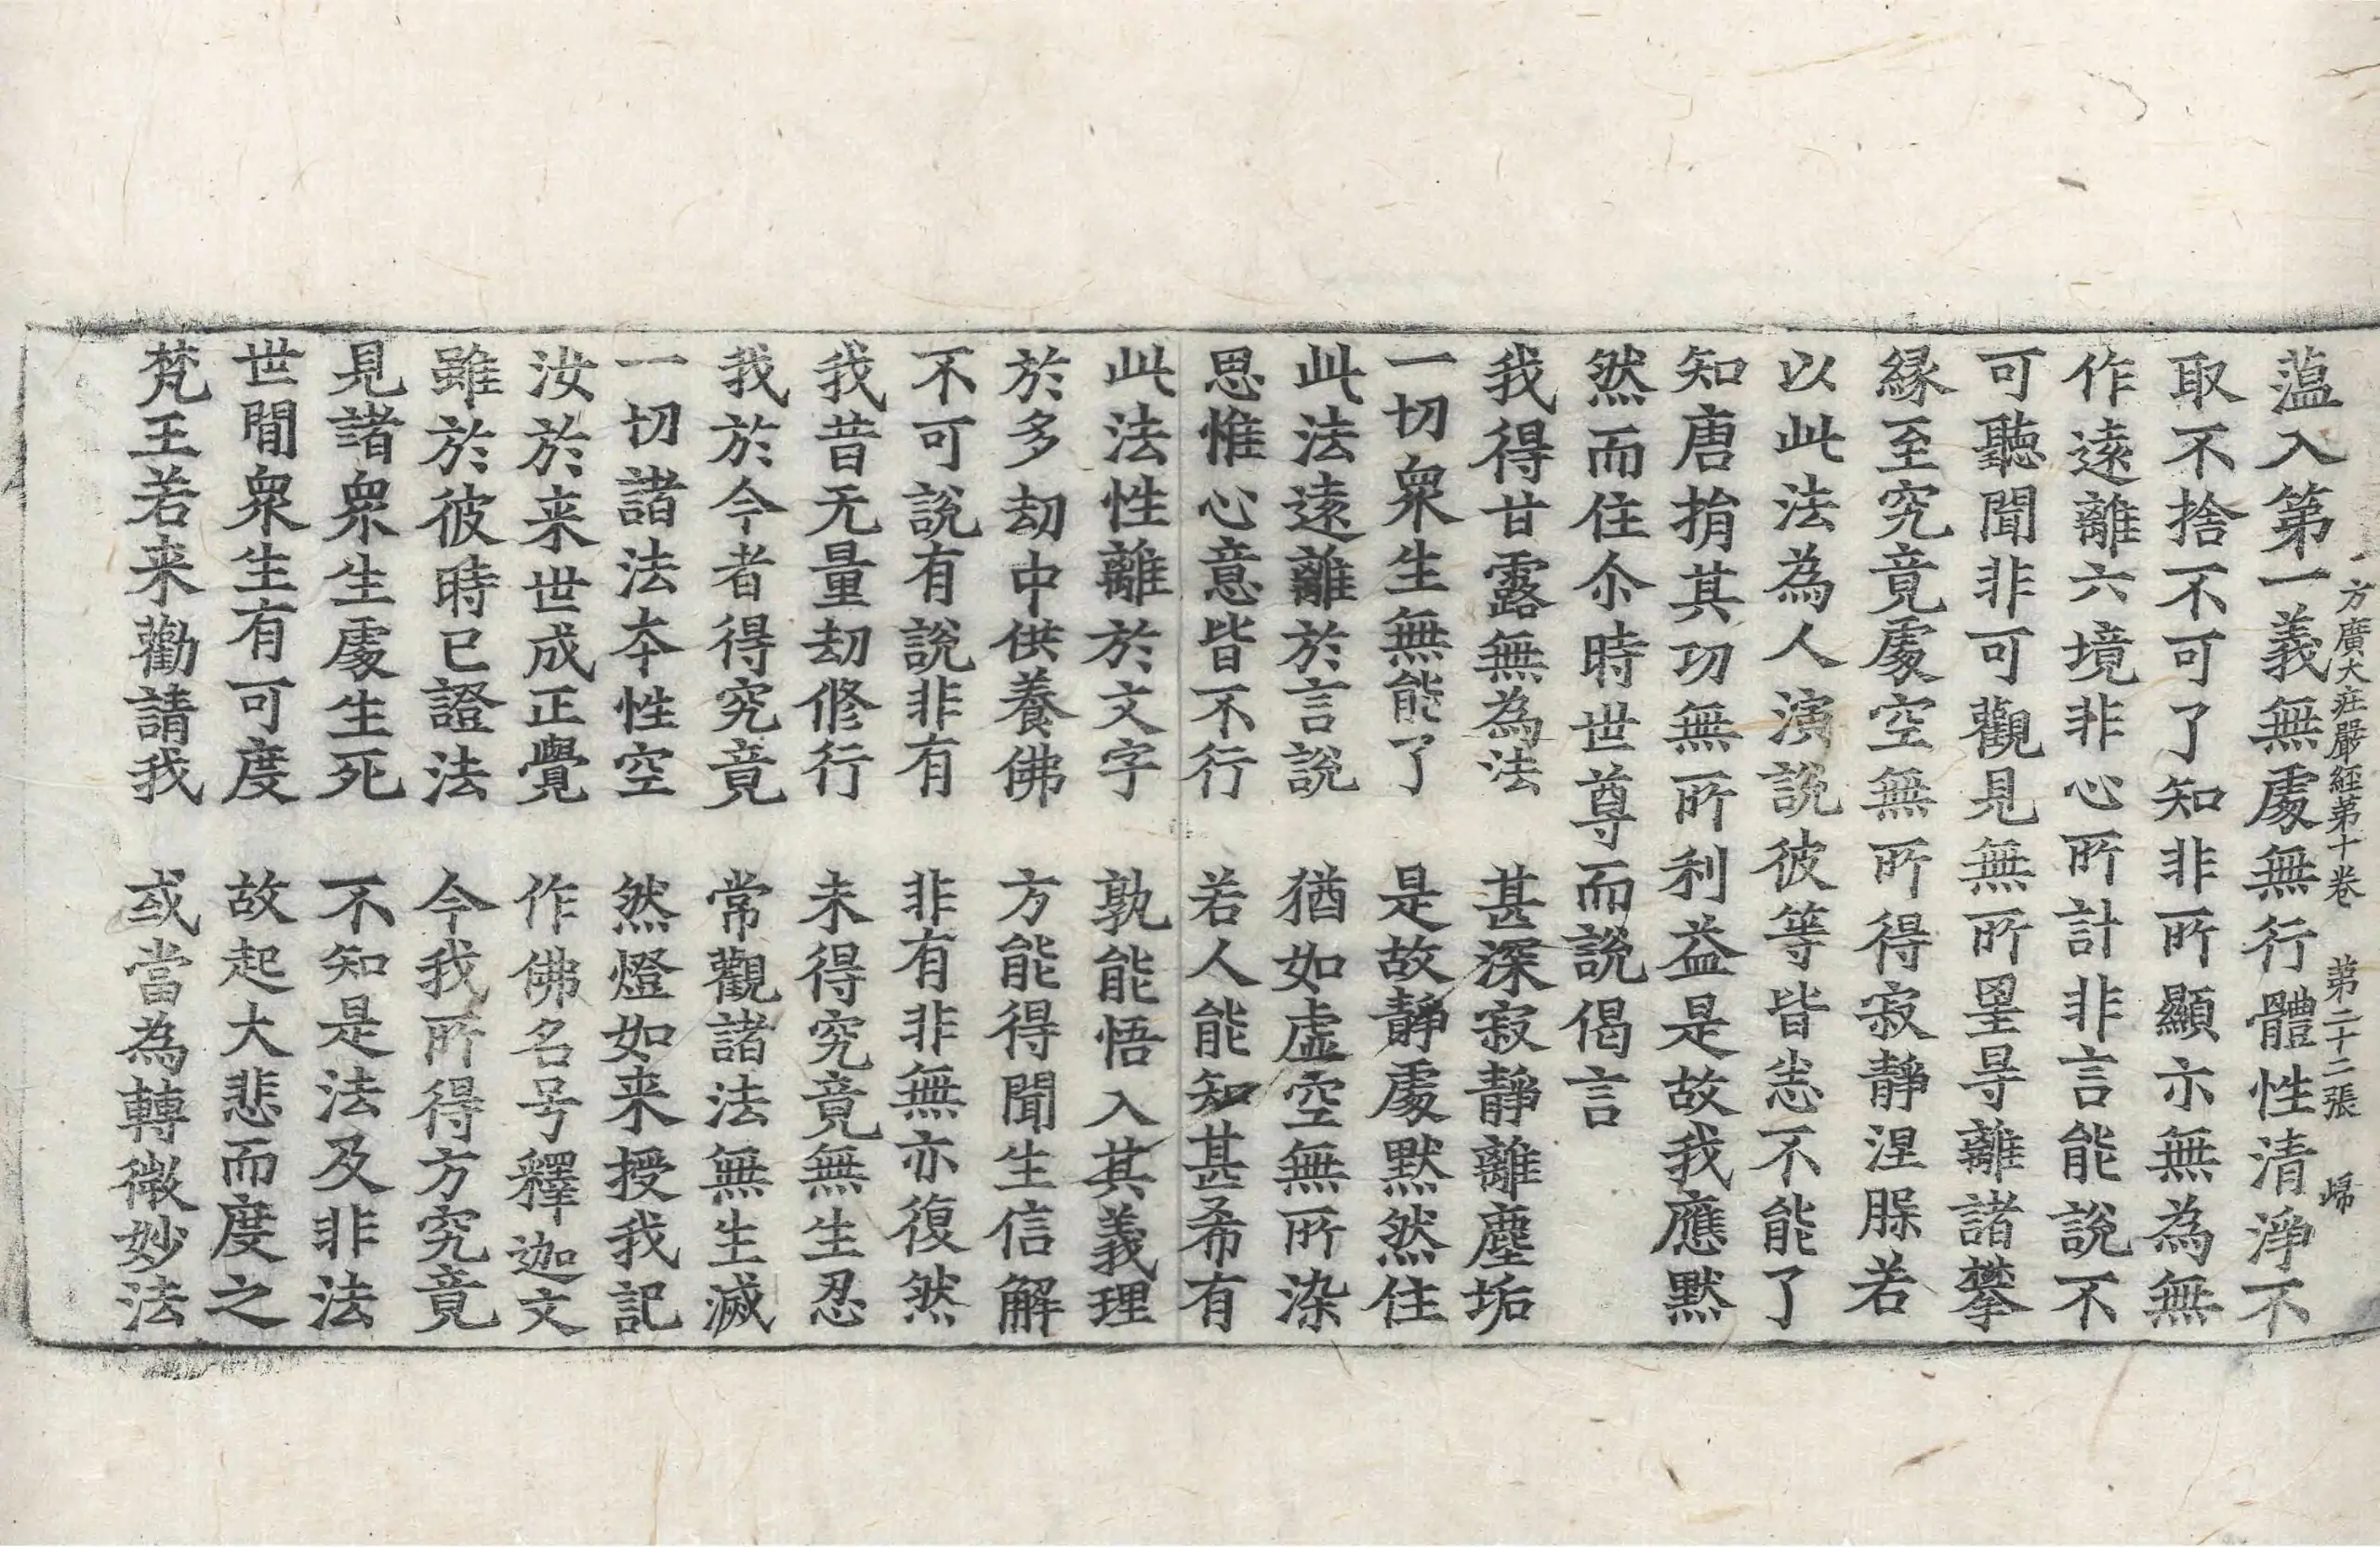 方廣大莊嚴經第十卷　第二十二張　歸
薀入第一義無處無行體性清淨不
取不捨不可了知非所顯示無為無
作遠離六境非心所計非言能說不
可聽聞非可觀見無所罣㝵離諸攀
緣至究竟處空無所得寂靜涅脲若
以此法為人演說彼等皆悉不能了
知唐捐其功無所利益是故我應默
然而住尒時世尊而說偈言
我得甘露無為法　甚深寂靜離塵垢
一切衆生無能了　是故靜處默然住
此法遠離於言說　猶如虛空無所染
思惟心意皆不行　若人能知甚希有
此法性離於文字　孰能悟入其義理
於多劫中供養佛　方能得聞生信解
不可說有說非有　非有非無亦復然
我昔无量劫修行　未得究竟無生忍
我於今者得究竟　常觀諸法無生滅
一切諸法夲性空　然燈如来授我記
汝於来世成正覺　作佛名号釋迦文
雖於彼時已證法　今我所得方究竟
見諸衆生處生死　不知是法及非法
世間衆生有可度　故起大悲而度之
梵王若来勸請我　或當為轉微妙法